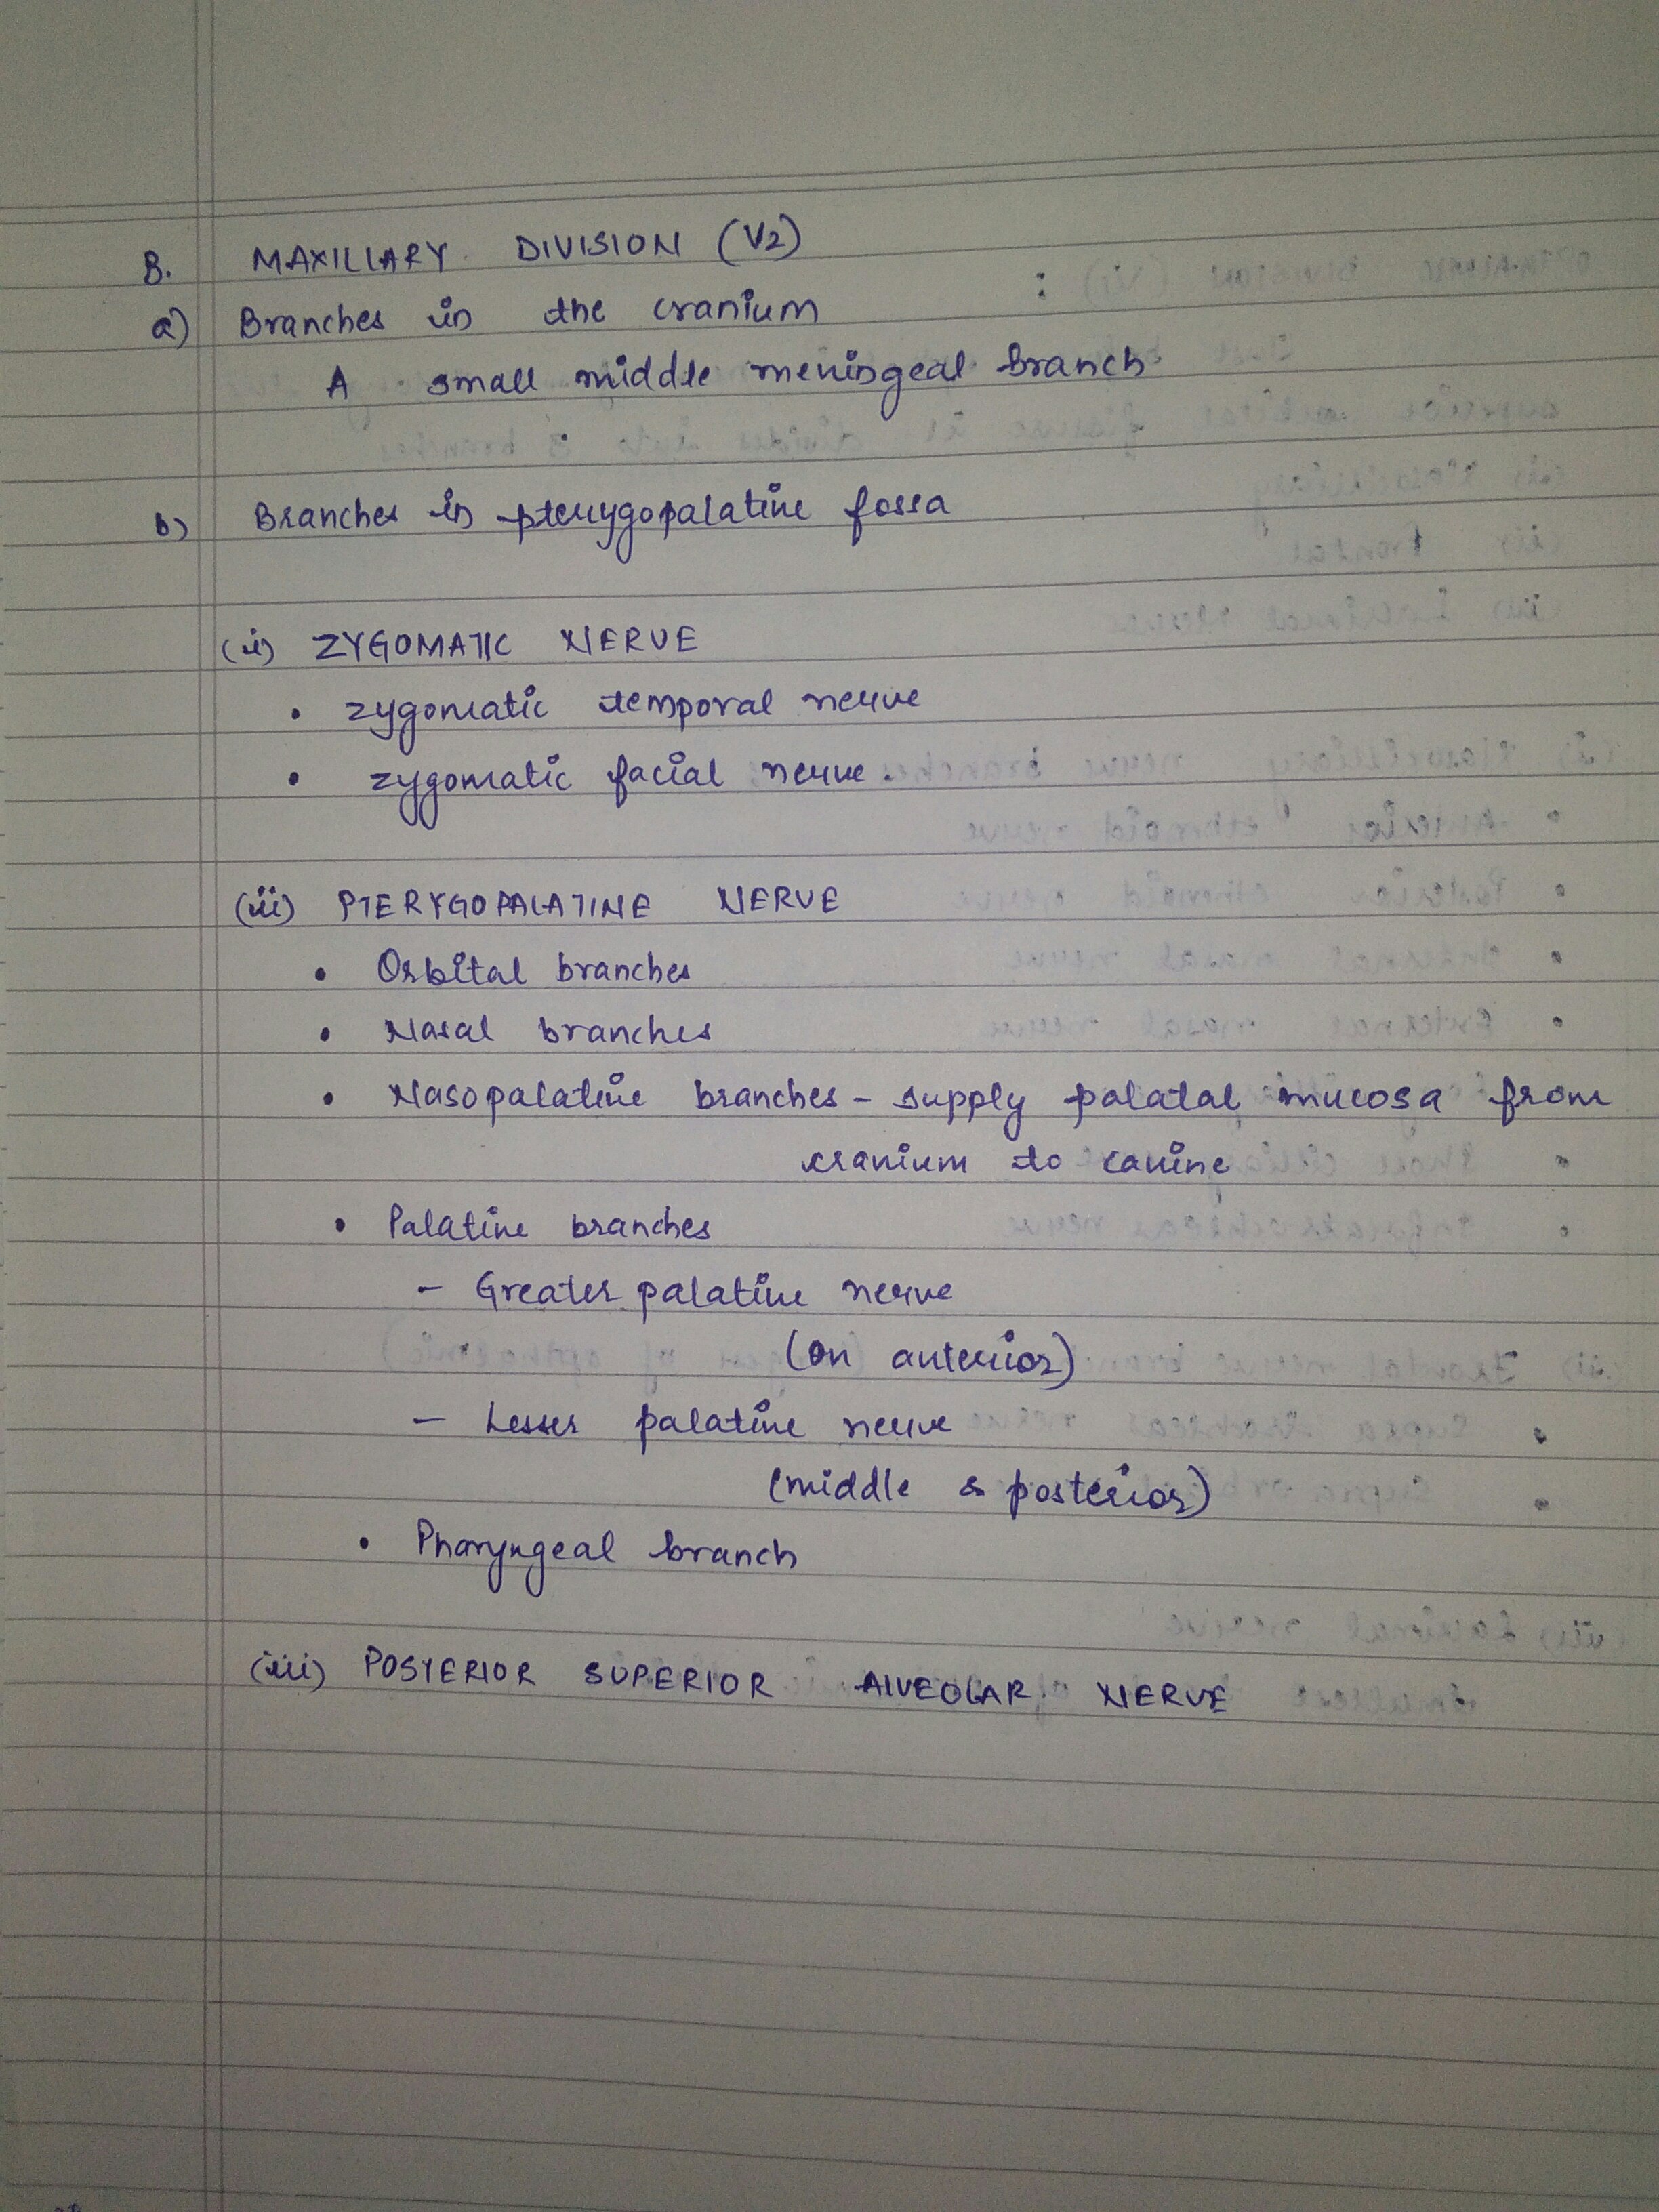 B. MAXILLARY DIVISION (V2)
a) Branches in the cranium
A small middle meningeal branch
b) Branches in pterygopalatine fossa
(i) ZYGOMATIC NERVE
• zygomatic temporal nerve
• zygomatic facial nerve.
(ii) PTERYGOPALATINE NERVE
• Orbital branches
• Nasal branches
• Nasopalatine branches - supply palatal mucosa from
cranium to canine
• Palatine branches
- Greater palatine nerve
(on anterior)
- Lesser palatine nerve
(middle & posterior)
• Pharyngeal branch
(iii) POSTERIOR SUPERIOR ALVEOLAR NERVE